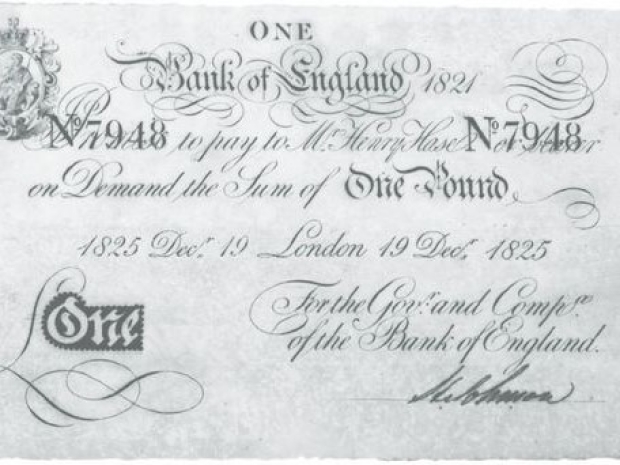 ONE
Bank of England 1821
No 7948 to pay to Mr. Henry Hase No 7948
on Demand the Sum of One Pound
1825 Decr. 19 London 19 Decr. 1825
For the Govr. and Compa.
of the Bank of England.
One